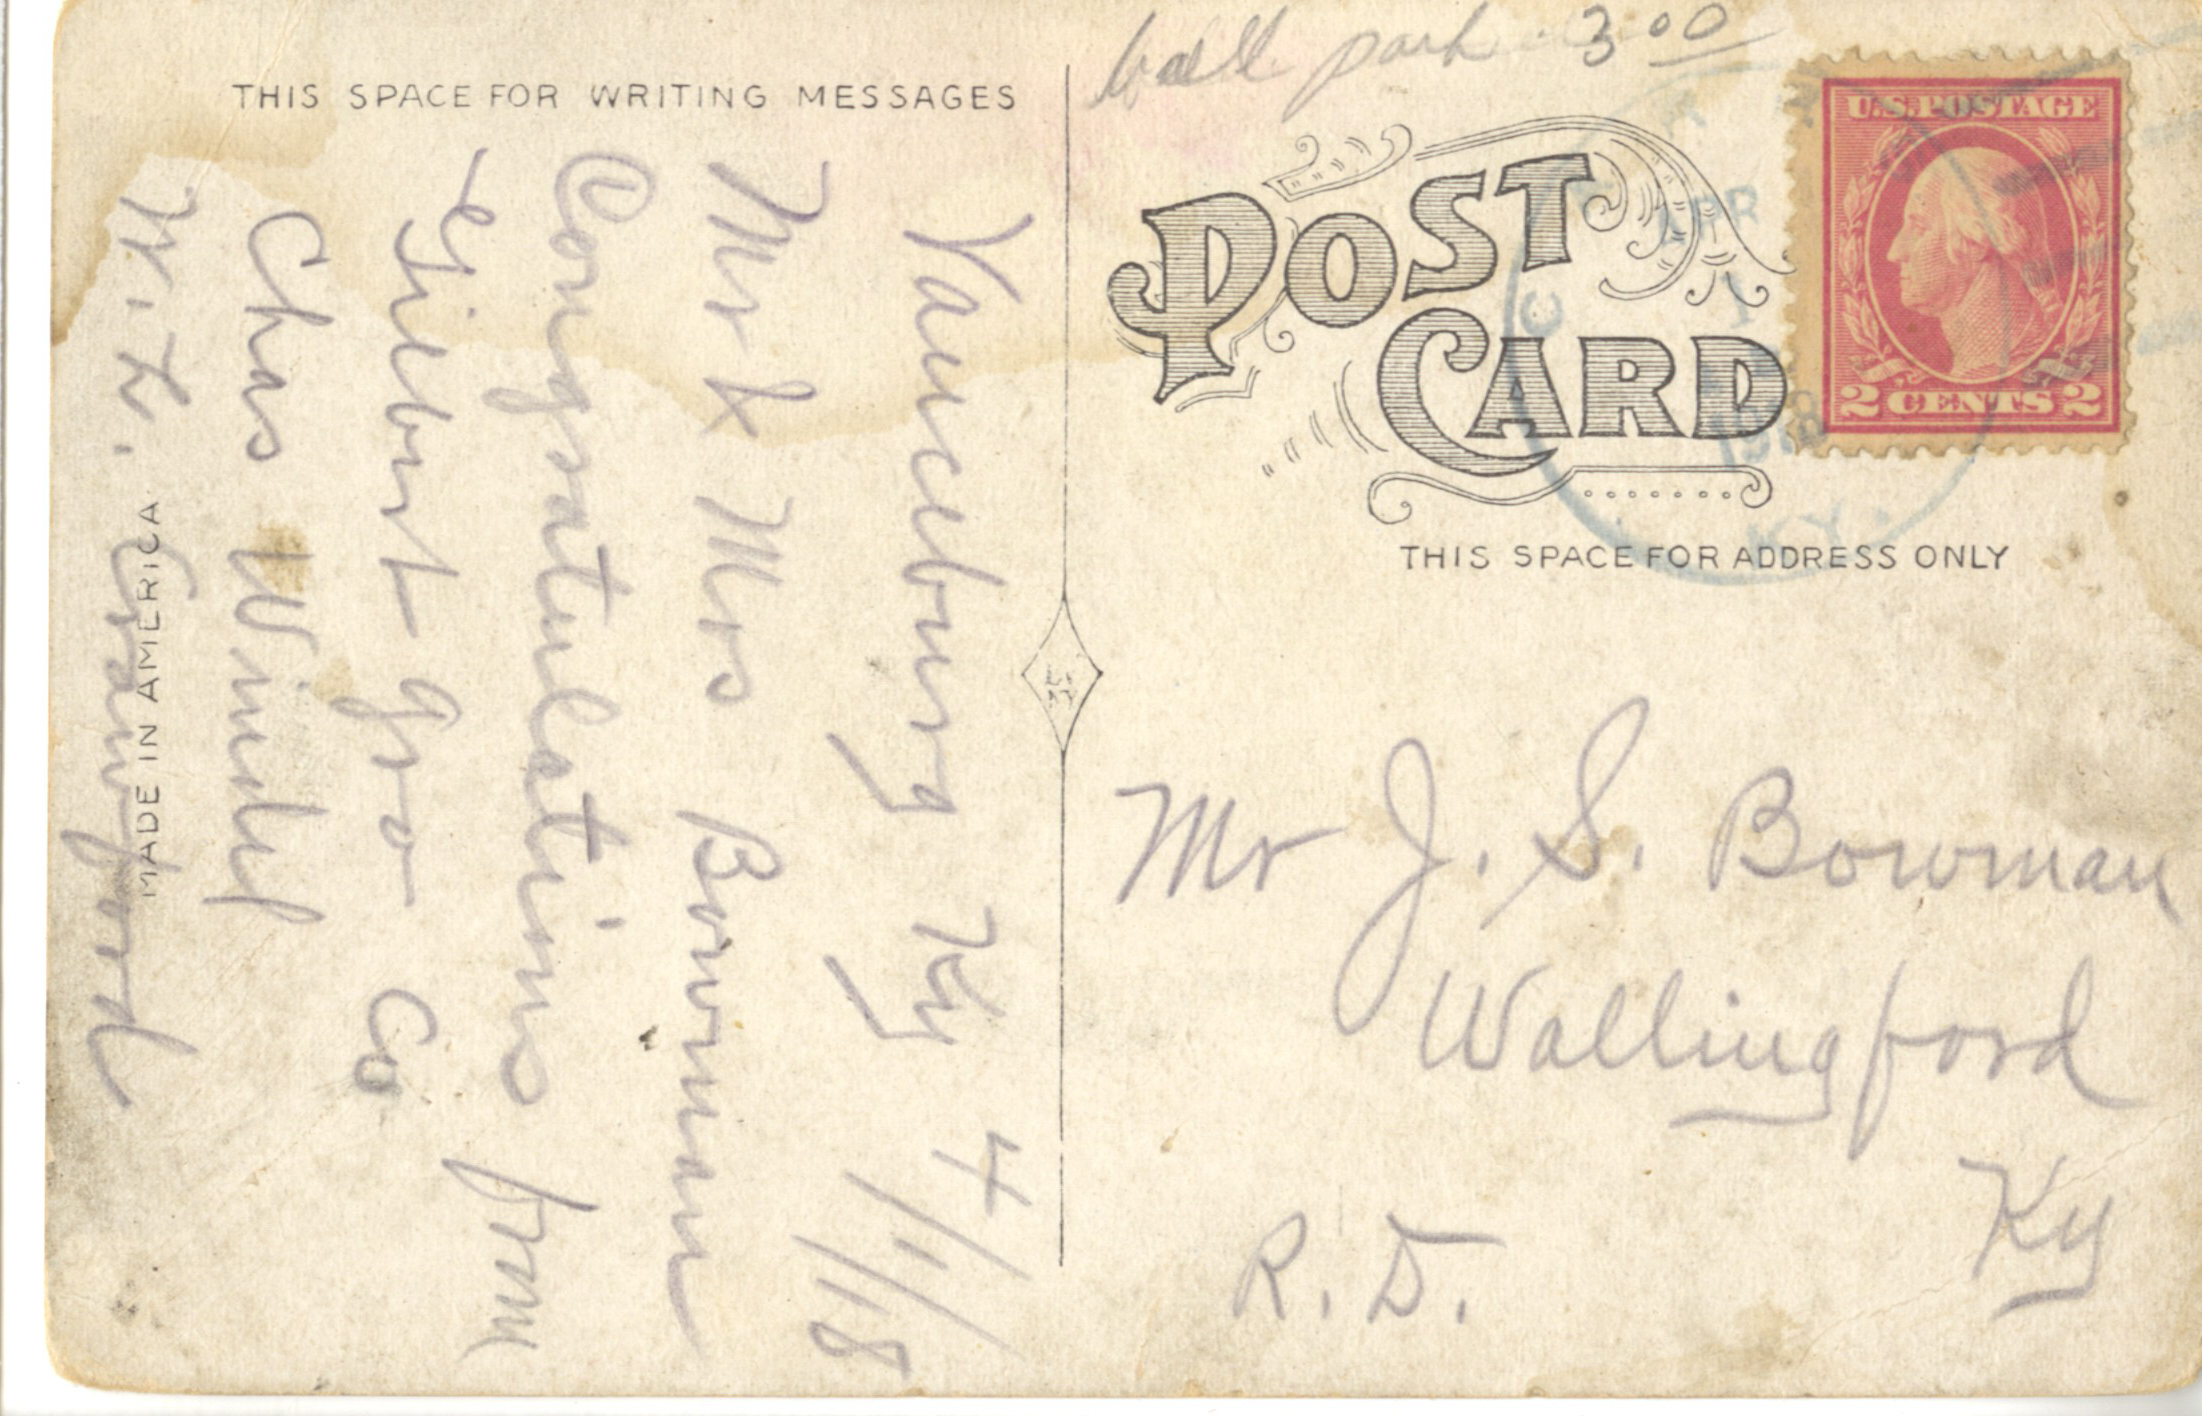 ball park 3 00
THIS SPACE FOR WRITING MESSAGES
Vanceburg Ky 4/1/18
Mr & Mrs Bowman
Congratulations from
Gilbert Gro Co
Chas Windel
W. L. Crawford
MADE IN AMERICA
POST
CARD
THIS SPACE FOR ADDRESS ONLY
U.S. POSTAGE
2 CENTS 2
APR
1
1918
KY.
Mr J. S. Bowman
Wallingford
Ky
R. D.